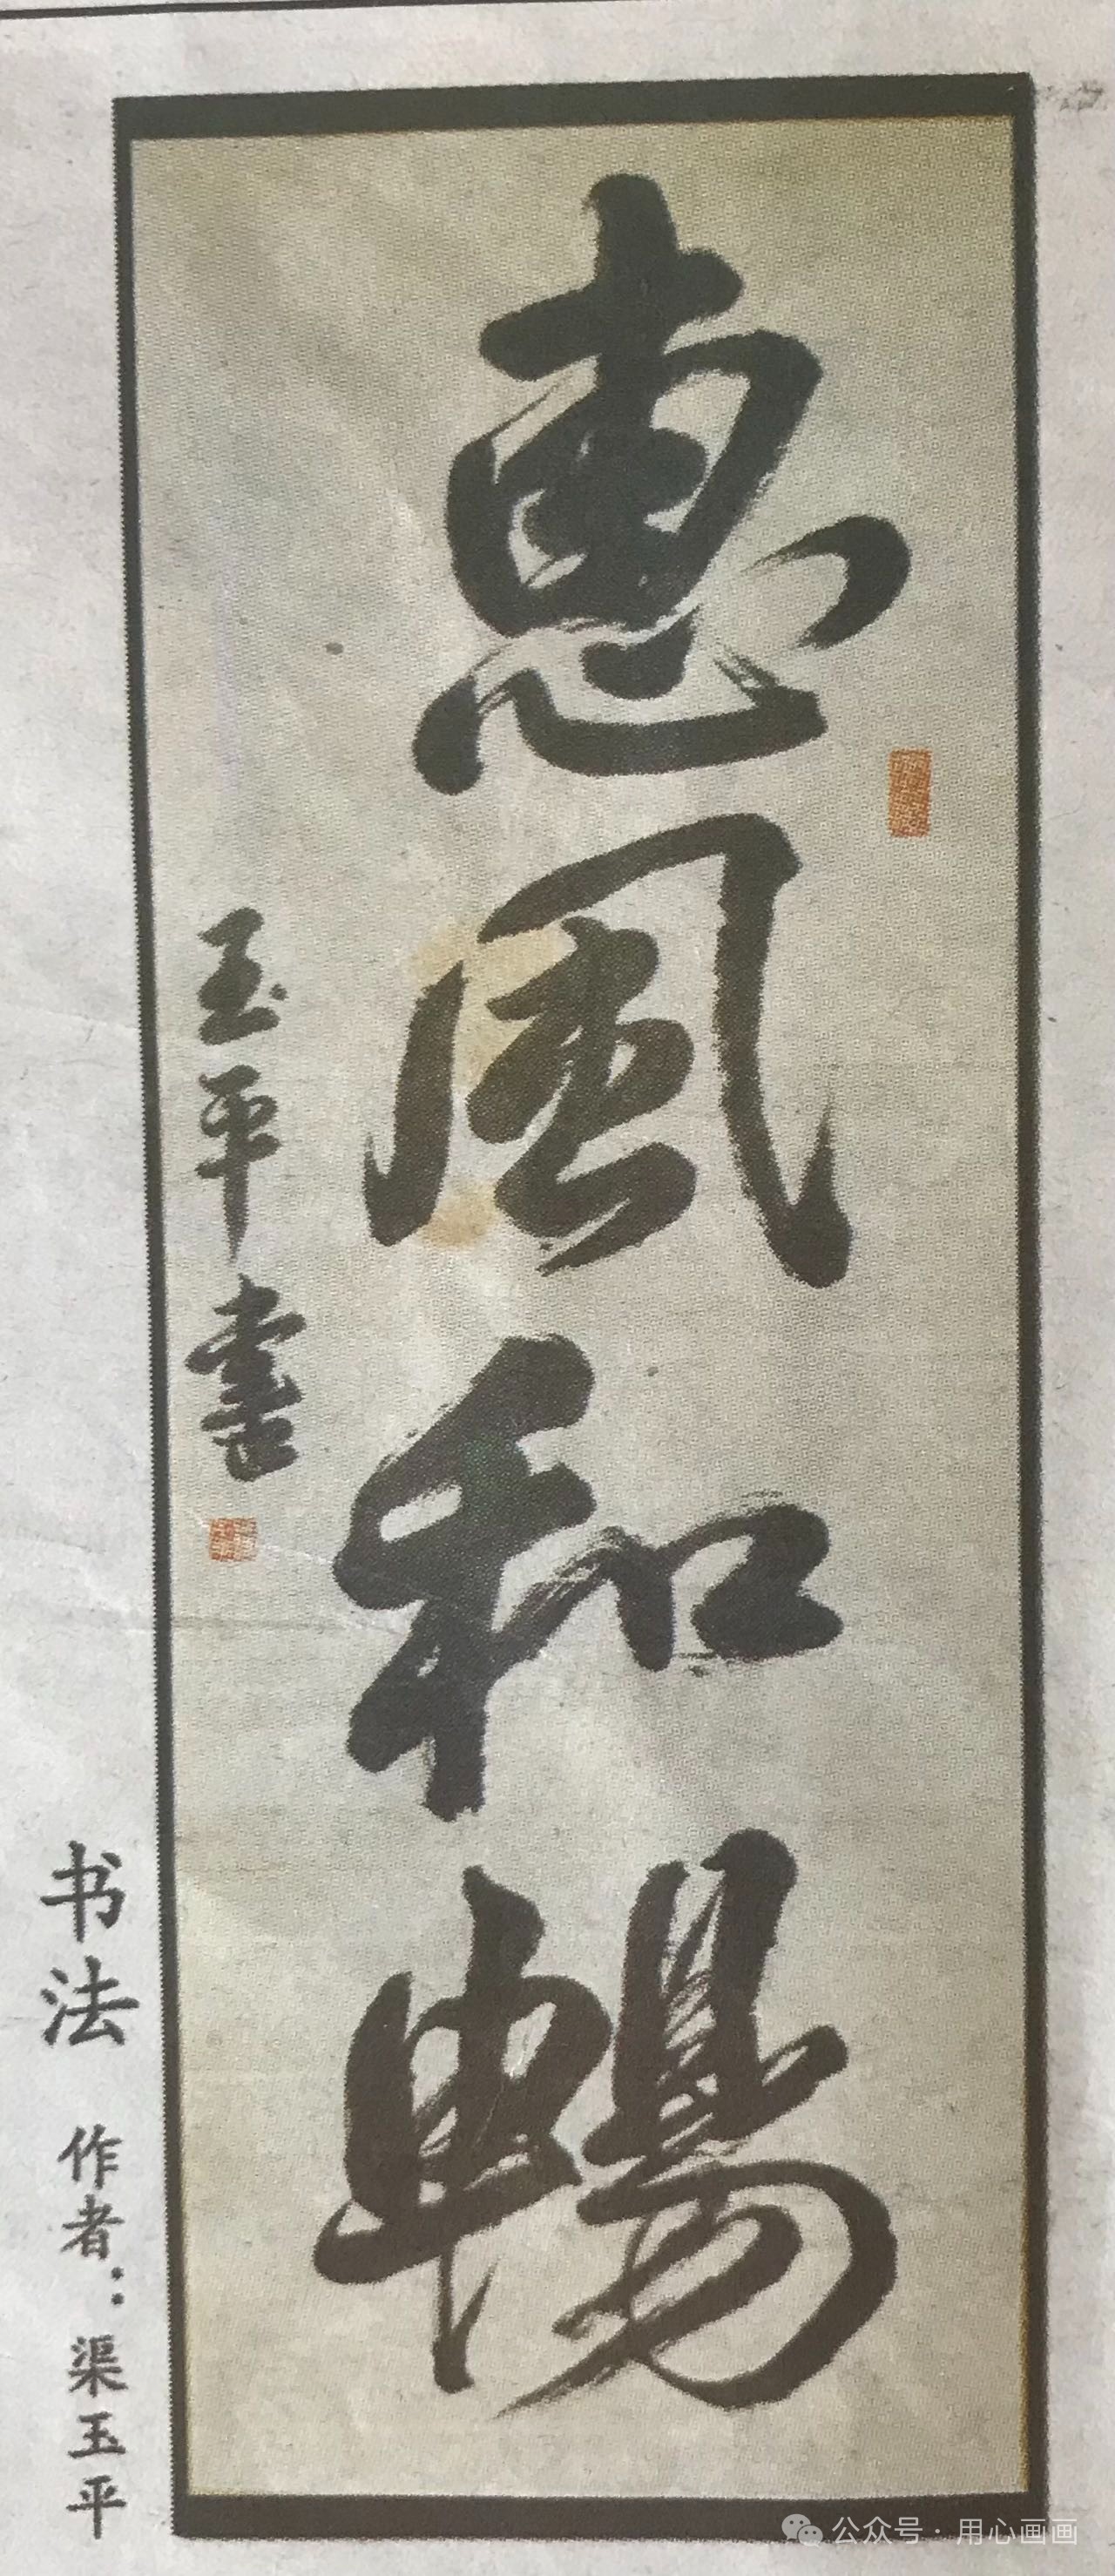 惠風和暢
玉平書
书法 作者：渠玉平
公众号·用心画画